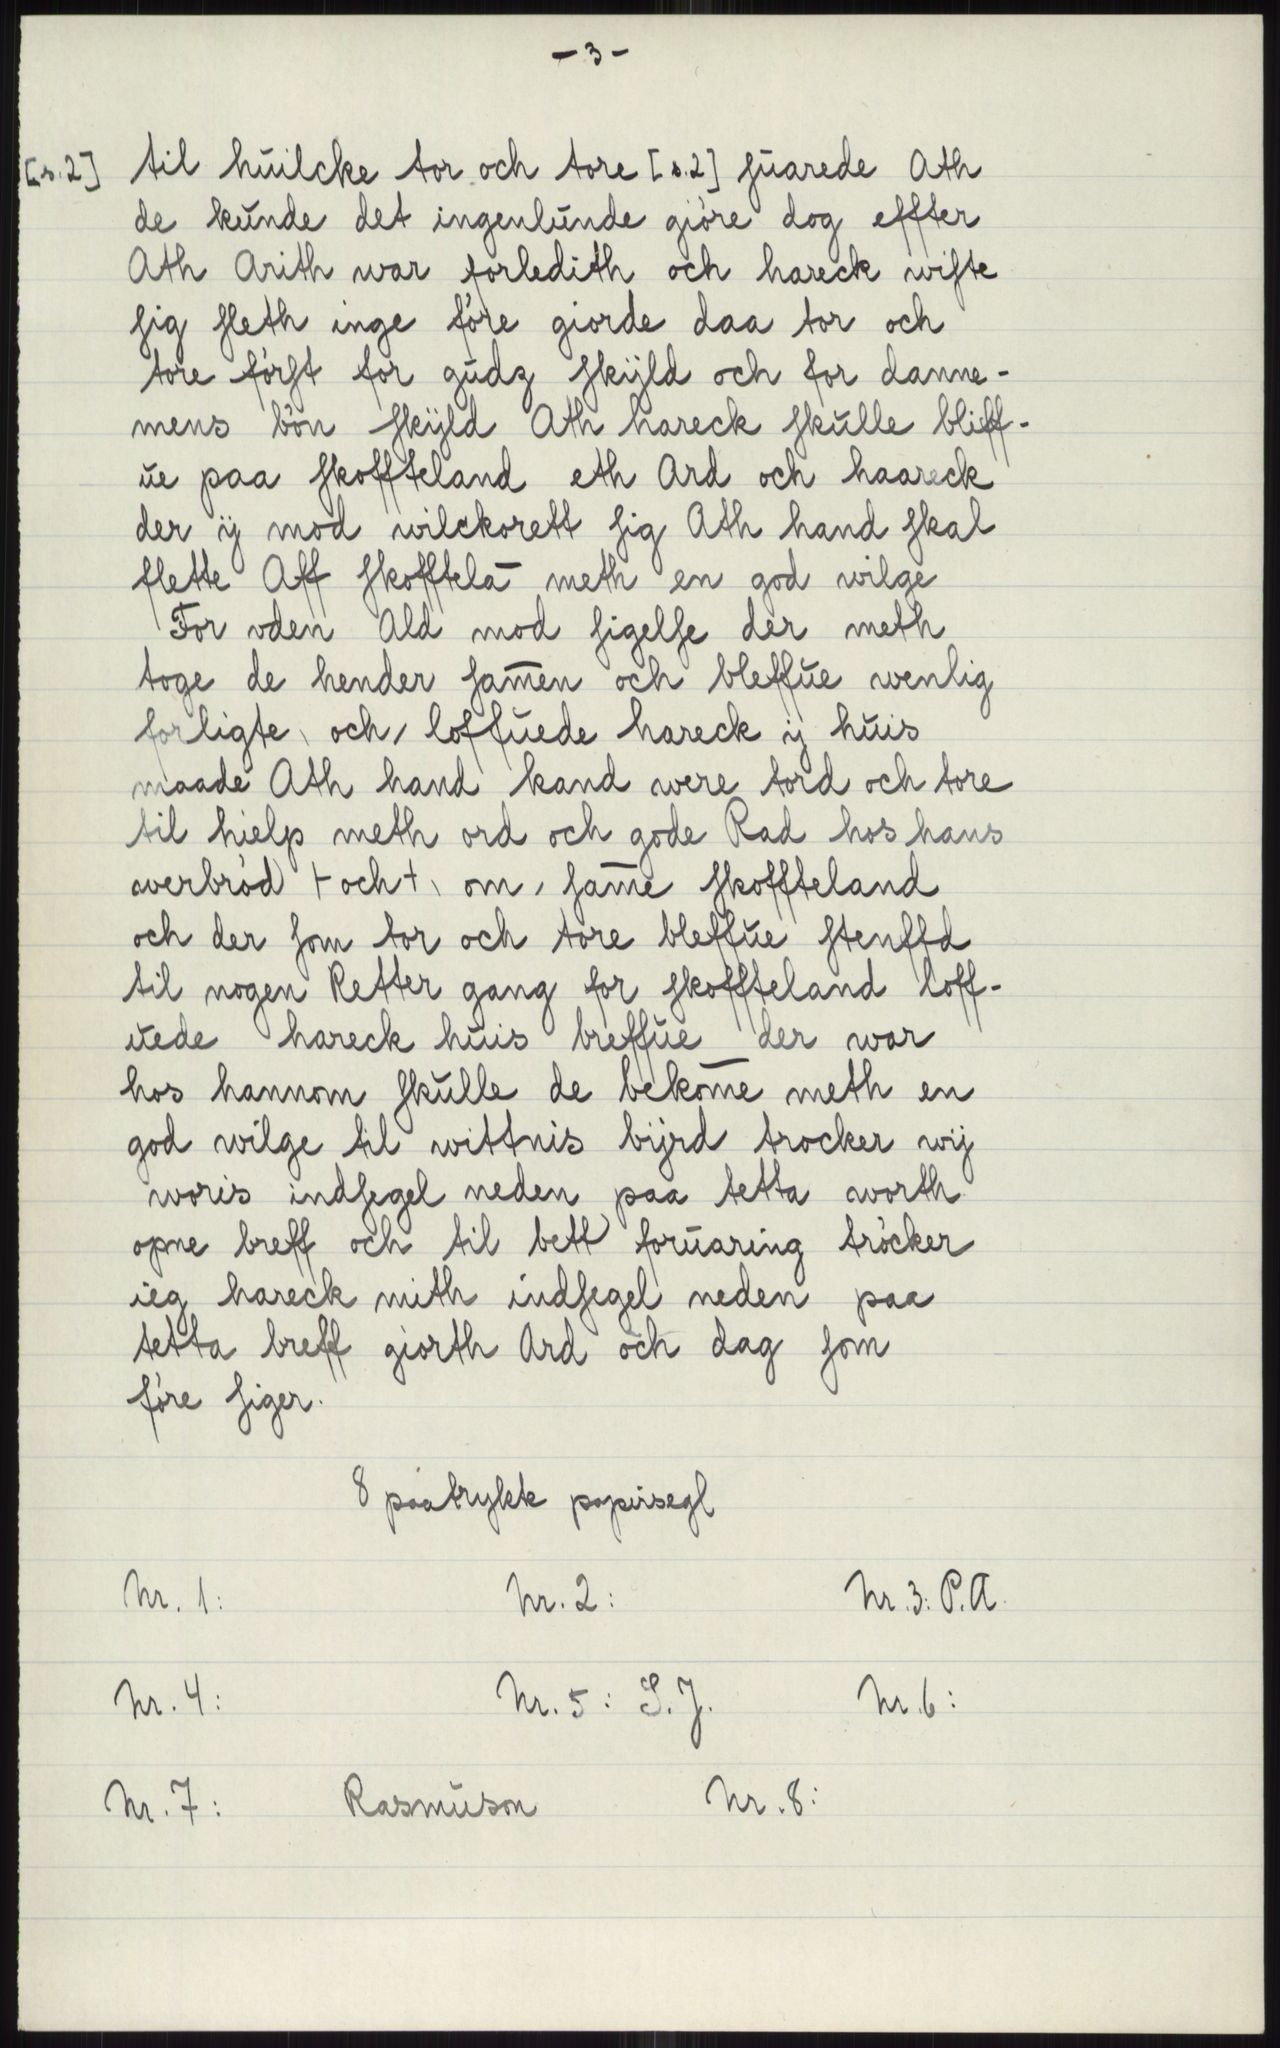 - 3 -
[s.2] til huilcke tor och tore [s.2] ſuarede Ath
de kunde det ingenlunde giöre dog effter
Ath Arith war forledith och hareck wiſte
ſig ſleth inge före giorde daa tor och
tore förſt for gudz ſkÿld och for danne-
mens bön ſkÿld Ath hareck ſkulle blieff-
ue paa ſkoffteland eth Ard och haareck
der ÿ mod wilckorett ſig Ath hand ſkal
flette Aff ſkofftelā meth en god wilge
For vden Ald mod ſigelſe der meth
toge de hender ſam̅en och bleffue wenlig
forligte \ och / loffuede hareck ÿ huis
maade Ath hand kand were tord och tore
til hielp meth ord och gode Rad hos hans
werbröd ⊢ och ⊣ \ om / ſam̅e ſkoffteland
och der ſom tor och tore bleffue ſtenffd
til nogen Retter gang for ſkoffteland loff-
uede hareck huis breffue der war
hos hannom ſkulle de bekom̅e meth en
god wilge til wittnis bÿrd trocker wÿ
woris indſegel neden paa tetta worth
opne breff och til bett foruaring tröcker
ieg hareck mith indſegel neden paa
tetta breff giorth Ard och dag ſom
före ſiger.
8 paatrykte papirsegl
Nr. 1: Nr. 2: Nr. 3: P.A.
Nr. 4: Nr. 5: S.J. Nr. 6:
Nr. 7: Rasmuson Nr. 8: